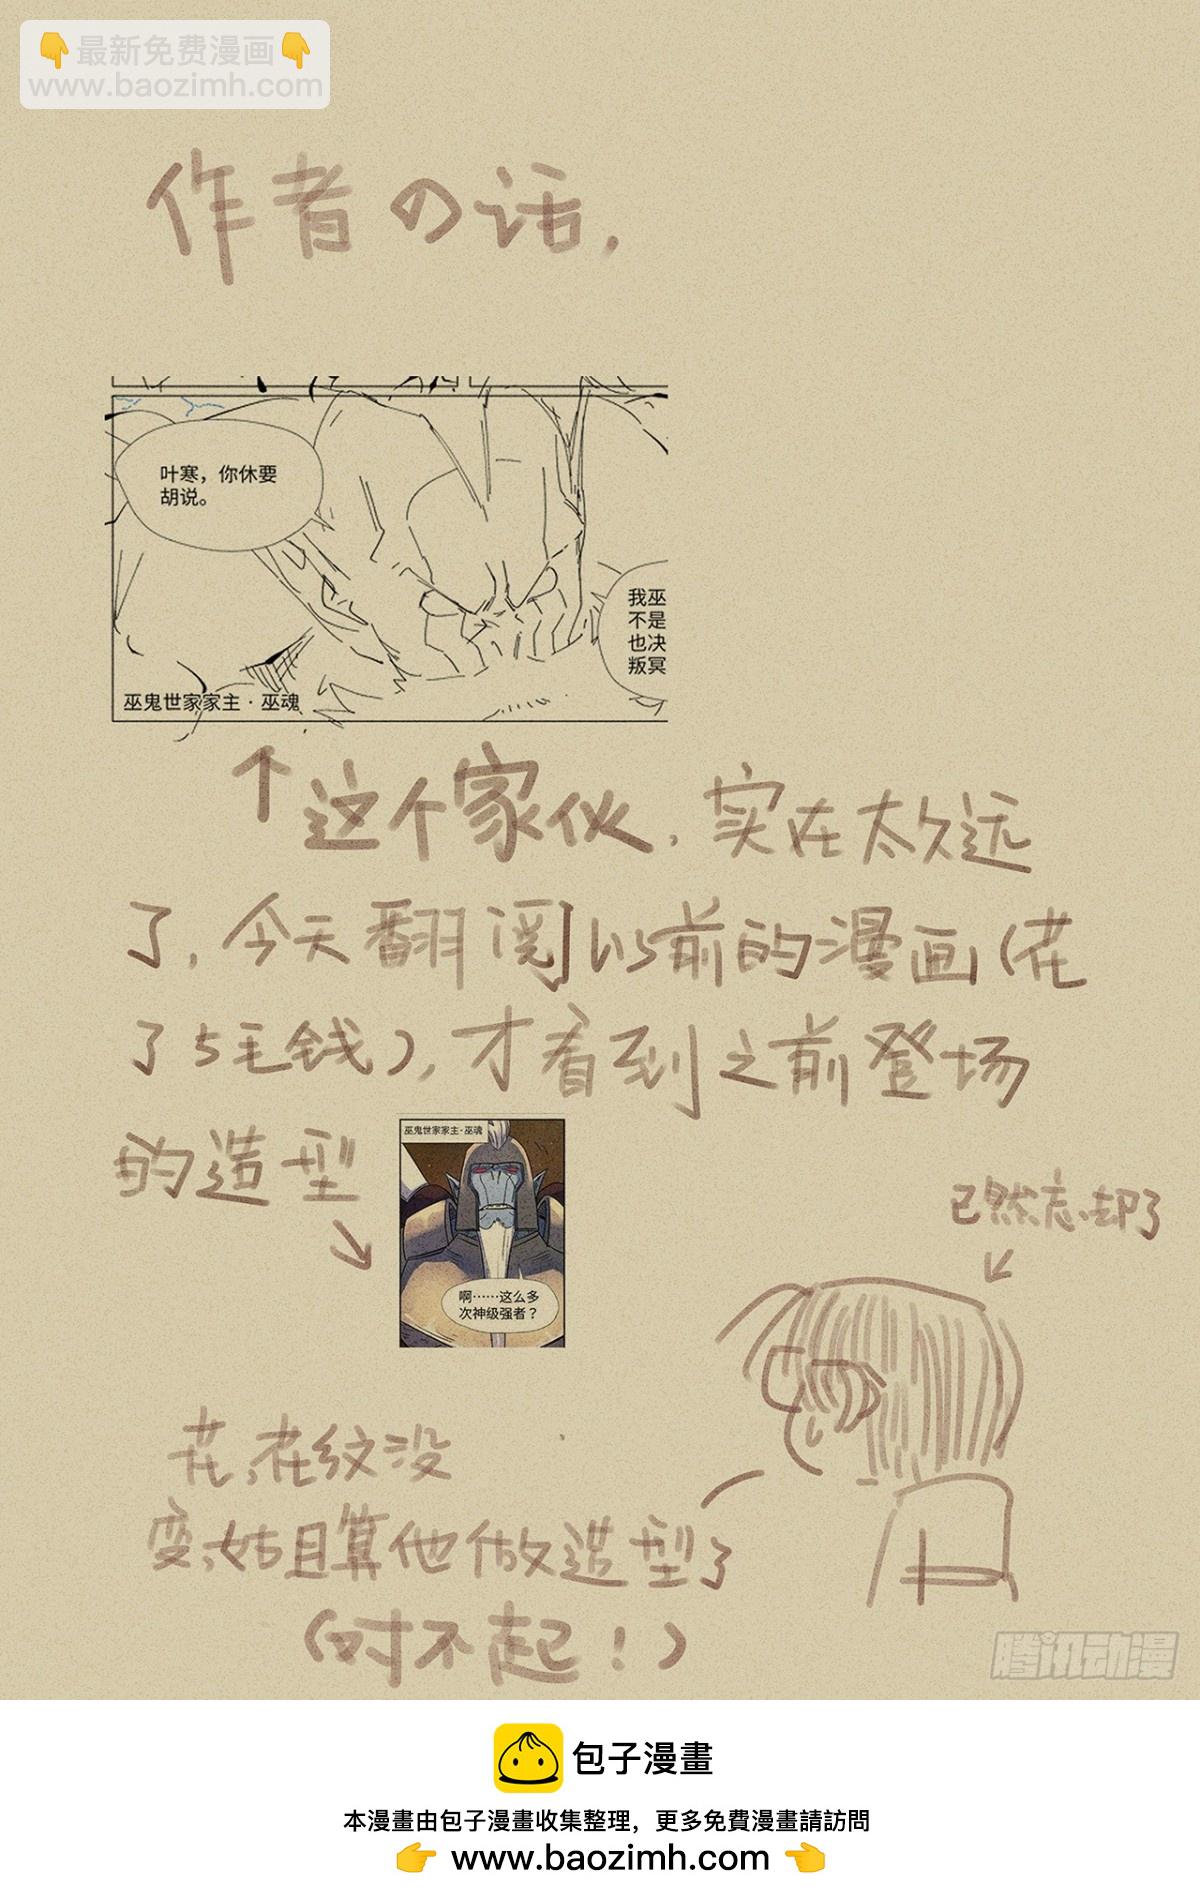 👇最新免费漫画👇
www.baozimh.com
作者の话,
叶寒，你休要
胡说。
我巫
不是
也决
叛冥
巫鬼世家家主·巫魂
↑这个家伙,实在太久远
了,今天翻阅以前的漫画(花
了5毛钱),才看到之前登场
的造型
巫鬼世家家主·巫魂
啊……这么多
次神级强者？
已然忘却了
花,花纹没
变,姑且算他做造型了
(对不起!)
腾讯动漫
包子漫畫
本漫畫由包子漫畫收集整理，更多免費漫畫請訪問
👉 www.baozimh.com 👈